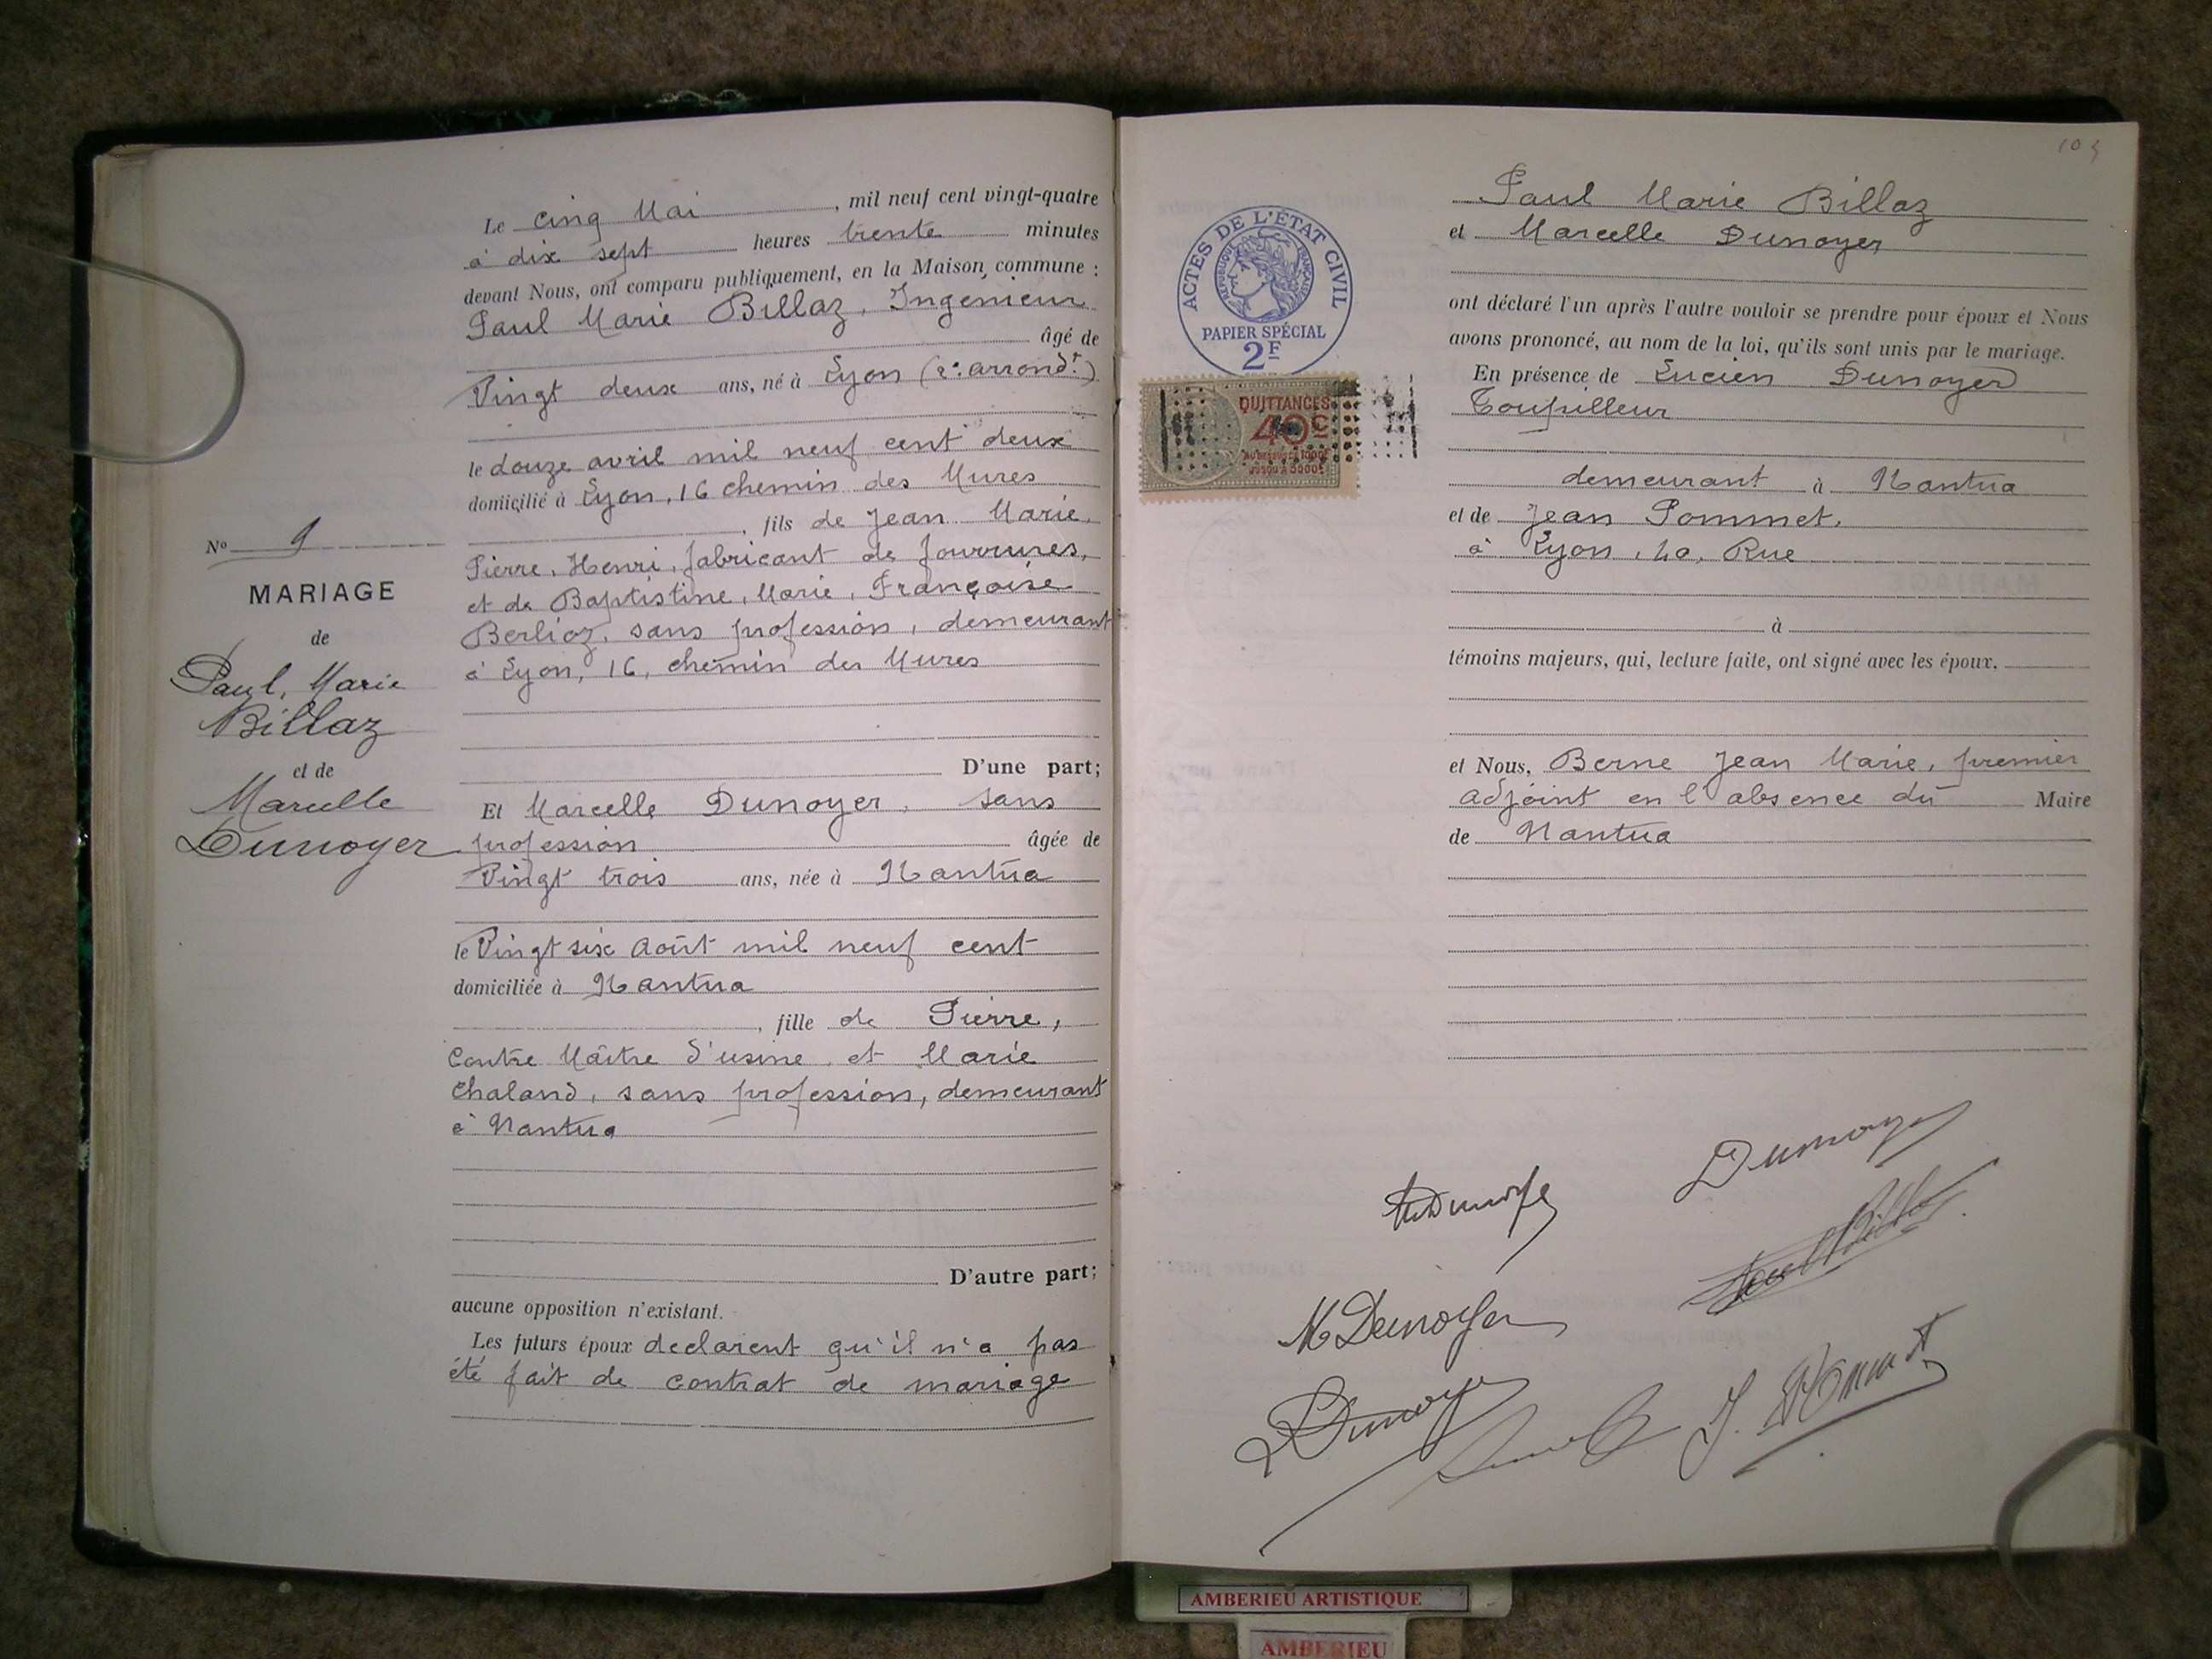 Le cinq Mai, mil neuf cent vingt-quatre
à dix sept heures trente minutes
devant Nous, ont comparu publiquement, en la Maison commune :
Paul Marie Billaz, Ingénieur
âgé de
Vingt deux ans, né à Lyon (2e arrondt)
le douze avril mil neuf cent deux
domicilié à Lyon, 16 chemin des Mures
, fils de Jean Marie,
Pierre, Henri, fabricant de fourrures,
et de Baptistine, Marie, Françoise
Berlioz, sans profession, demeurant
à Lyon, 16, chemin des Mures
D'une part;
Et Marcelle Dunoyer, sans
profession âgée de
Vingt trois ans, née à Nantua
le Vingt six Août mil neuf cent
domiciliée à Nantua
, fille de Pierre,
Contre Maître d'usine, et Marie
Chaland, sans profession, demeurant
à Nantua
D'autre part;
aucune opposition n'existant.
Les futurs époux declarent qu'il n'a pas
été fait de contrat de mariage
No 9
MARIAGE
de
Paul, Marie
Billaz
et de
Marcelle
Dunoyer
ACTES DE L'ÉTAT CIVIL
RÉPUBLIQUE FRANÇAISE
PAPIER SPÉCIAL
2F
QUITTANCES
40c
AU DESSUS DE 1000F
JUSQU'A 3000F
Paul Marie Billaz
et Marcelle Dunoyer
ont déclaré l'un après l'autre vouloir se prendre pour époux et Nous
avons prononcé, au nom de la loi, qu'ils sont unis par le mariage.
En présence de Lucien Dunoyer
Toupilleur
demeurant à Nantua
et de Jean Pommet,
à Lyon, Rue
à
témoins majeurs, qui, lecture faite, ont signé avec les époux.
et Nous, Berne Jean Marie, premier
adjoint en l'absence du Maire
de Nantua
Dunoyer
M Dunoyer
Dunoyer
J. Pommet
AMBERIEU ARTISTIQUE
AMBERIEU